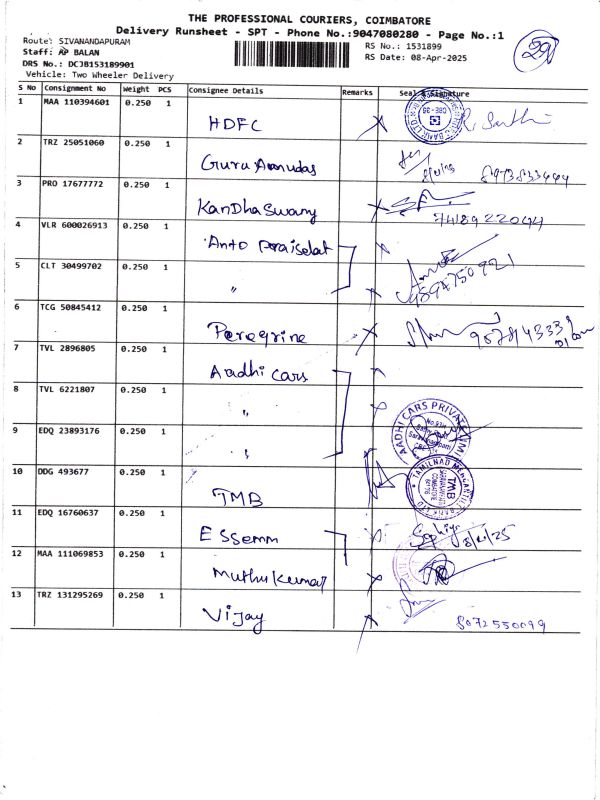 THE PROFESSIONAL COURIERS, COIMBATORE
Delivery Runsheet - SPT - Phone No.:9047080280 - Page No.:1
Route: SIVANANDAPURAM
RS No.: 1531899
29
Staff: AP BALAN
RS Date: 08-Apr-2025
DRS No.: DCJB153189901
Vehicle: Two Wheeler Delivery
S No Consignment No Weight PCS Consignee Details Remarks Seal & Signature
1 MAA 110394601 0.250 1 HDFC
2 TRZ 25051060 0.250 1 Guru
3 PRO 17677772 0.250 1 KanDhaswamy
7418922044
4 VLR 600026913 0.250 1 Anto
5 CLT 30499702 0.250 1 "
6 TCG 50845412 0.250 1 Peregrine
7 TVL 2896805 0.250 1 Aadhi cars
8 TVL 6221807 0.250 1 "
9 EDQ 23893176 0.250 1 "
AADHI CARS PRIVATE
10 DDG 493677 0.250 1 TMB
TAMILNAD MERCANTILE BANK LTD
TMB
COIMBATORE
11 EDQ 16760637 0.250 1 Essemm
12 MAA 111069853 0.250 1 Muthukumar
13 TRZ 131295269 0.250 1 Vijay
8072550099